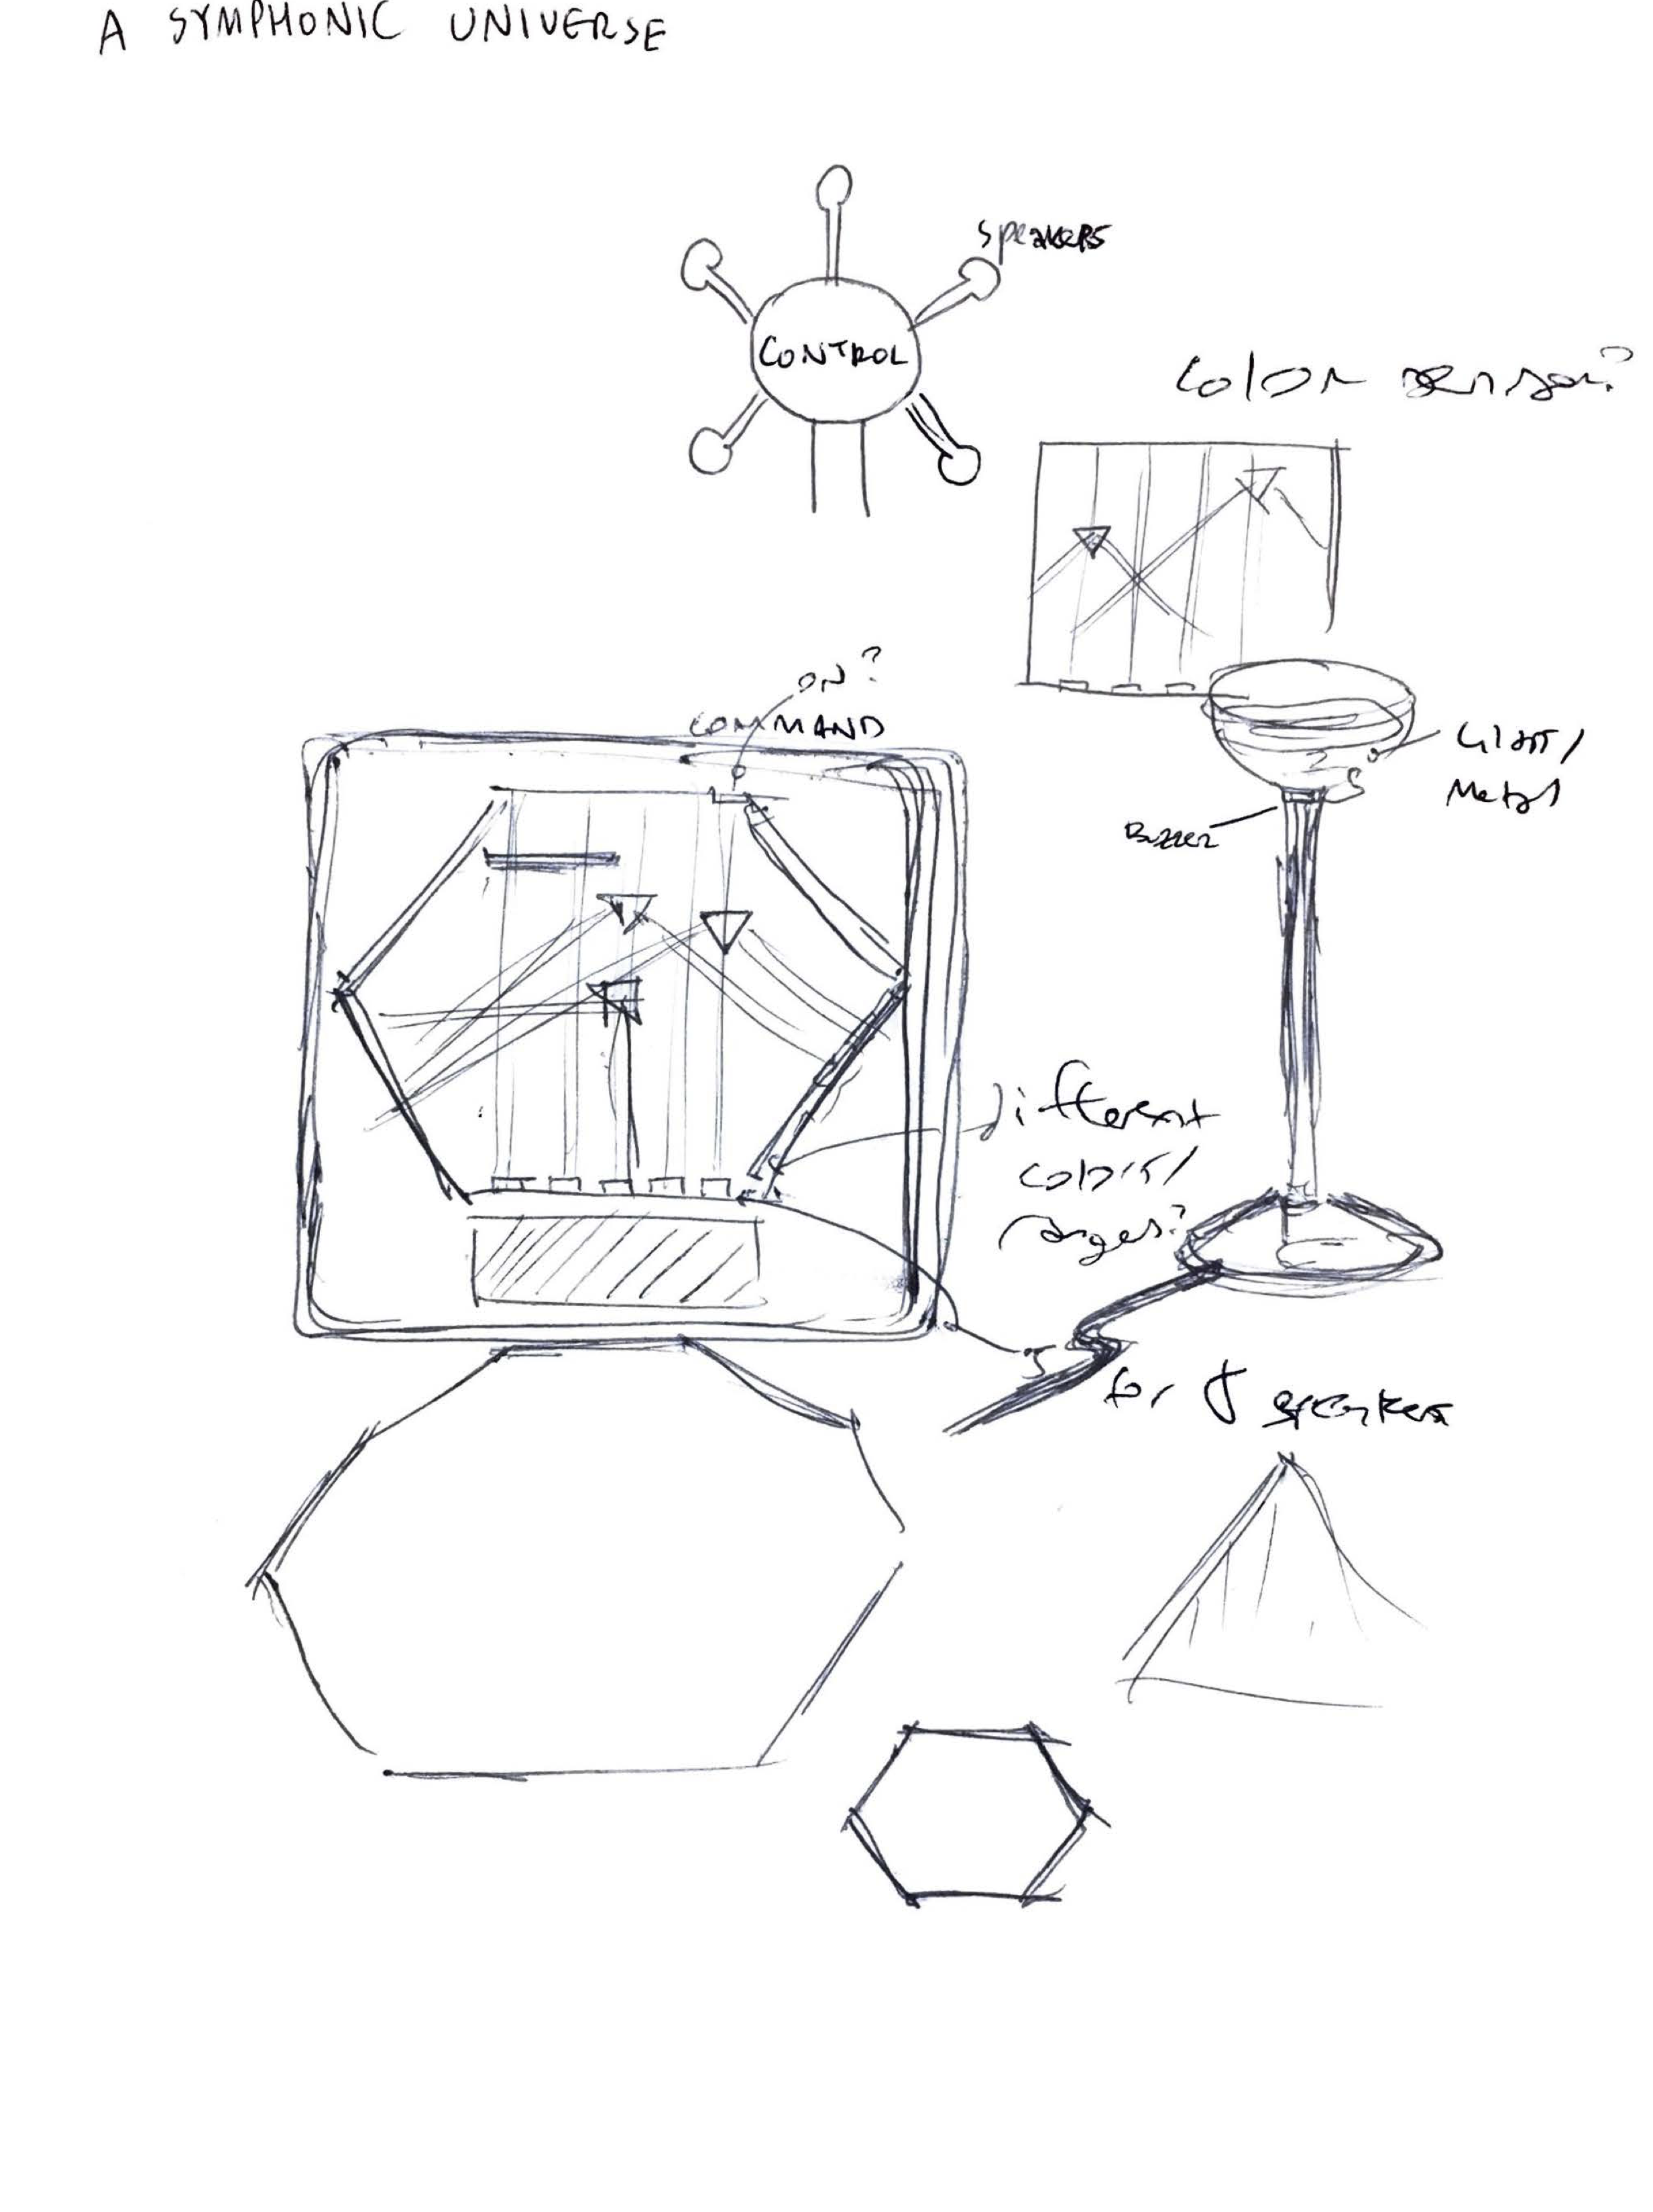 A SYMPHONIC UNIVERSE
speakers
CONTROL
Color sensor?
ON?
COMMAND
Glass/
Metal
Buzzer
different
colors/
ranges?
5
for 5 speakers